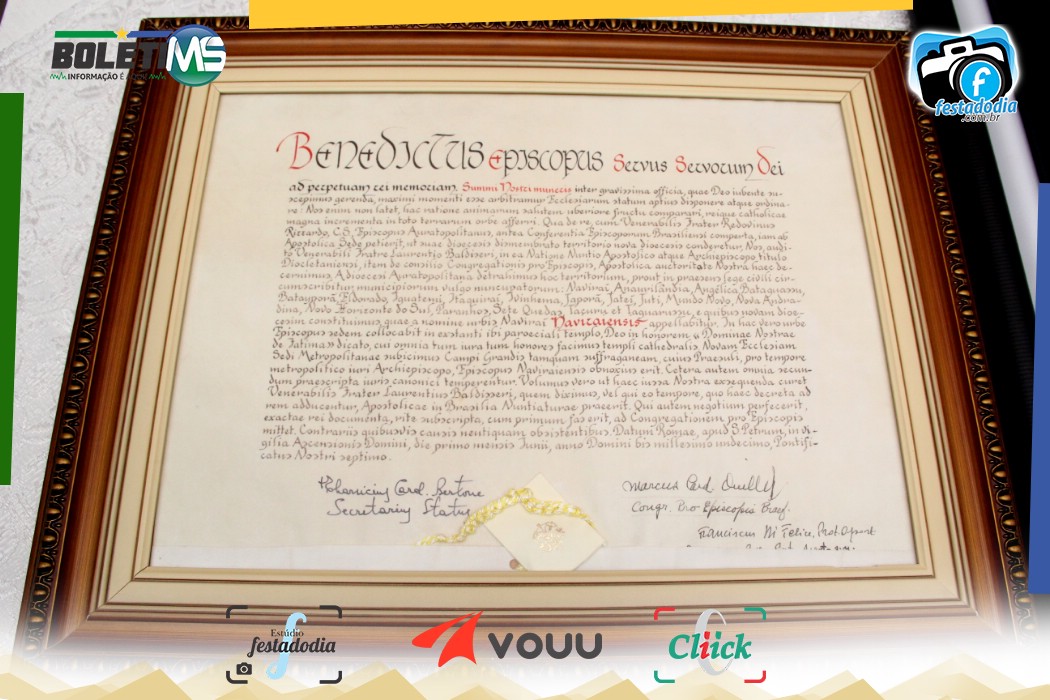 BOLETIMS
INFORMAÇÃO É
f
festadodia
.com.br
BENEDICTUS EPISCOPUS Servus Servorum Dei
ad perpetuam rei memoriam. Summi Nostri muneris inter gravissima officia, quae Deo iubente su-
scepimus gerenda, maximi momenti esse arbitramur Ecclesiarum statum aptius disponere atque ordina-
re: Nos enim non latet, hac ratione animarum salutem uberiore fructu comparari, reique catholicae
magna incrementa in toto terrarum orbe afferri. Qua de re, cum Venerabilis Frater Redovinus
Rizzardo, C.S., Episcopus Auratopolitanus, antea Conferentia Episcoporum Brasiliensi comperta, iam ab
Apostolica Sede petierit, ut suae dioecesis dismembrato territorio nova dioecesis conderetur, Nos, audi-
to Venerabili Fratre Laurentio Baldisseri, in ea Natione Nuntio Apostolico atque Archiepiscopo titulo
Diocletianensi, item de consilio Congregationis pro Episcopis, Apostolica auctoritate Nostra haec de-
cernimus. A dioecesi Auratopolitana detrahimus hoc territorium, prout in praesens lege civili cir-
cumscribitur municipiorum vulgo nuncupatorum: Naviraí, Anaurilândia, Angélica, Bataguassu,
Batayporã, Eldorado, Iguatemi, Itaquiraí, Ivinhema, Japorã, Jateí, Juti, Mundo Novo, Nova Andra-
dina, Novo Horizonte do Sul, Paranhos, Sete Quedas, Tacuru et Taquarussu, e quibus novam dioe-
cesim constituimus quae a nomine urbis Naviraí Naviraiensis appellabitur. In hac vero urbe
Episcopus sedem collocabit in exstanti ibi paroeciali templo, Deo in honorem « Dominae Nostrae
de Fatima » dicato, cui omnia tum iura tum honores facimus templi cathedralis. Novam Ecclesiam
Sedi Metropolitanae subicimus Campi Grandis tamquam suffraganeam, cuius Praesuli, pro tempore
metropolitico iuri Archiepiscopo, Episcopus Naviraiensis obnoxius erit. Cetera autem omnia secun-
dum praescripta iuris canonici temperentur. Volumus vero ut haec iussa Nostra exsequenda curet
Venerabilis Frater Laurentius Baldisseri, quem diximus, vel qui eo tempore, quo haec decreta ad
rem adducentur, Apostolicae in Brasilia Nuntiaturae praeerit. Qui autem negotium perfecerit,
exactae rei documenta, rite subscripta, cum primum fas erit, ad Congregationem pro Episcopis
mittet. Contrariis quibusvis causis neutiquam obsistentibus. Datum Romae, apud S. Petrum, in vi-
gilia Ascensionis Domini, die primo mensis Iunii, anno Domini bis millesimo undecimo, Pontifi-
catus Nostri septimo.
Tharsicius Card. Bertone
Secretarius Status
Marcus Card. Ouellet
Congr. Pro Episcopis Praef.
Franciscus Di Felice, Prot. Apost.
Estúdio
festadodia
VOUU
Cliick